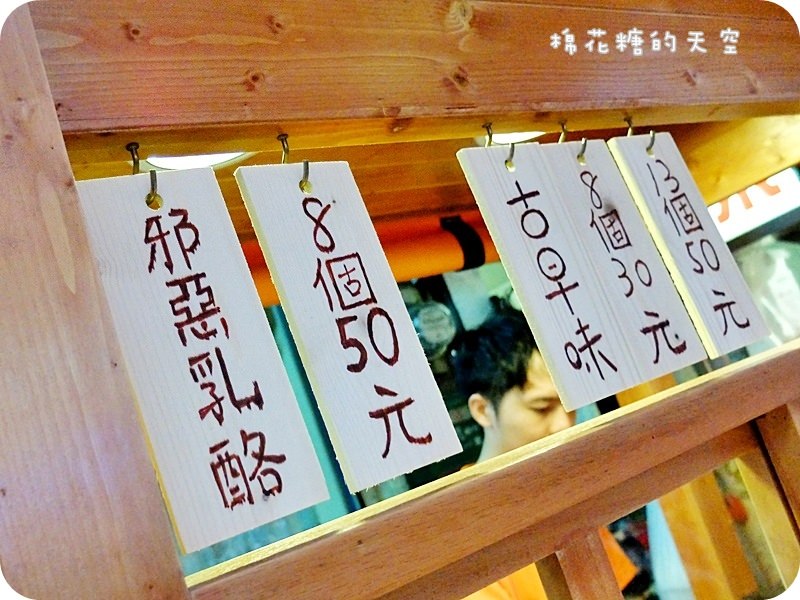 棉花糖的天空
邪惡乳酪
8個50元
古早味
8個30元
13個50元